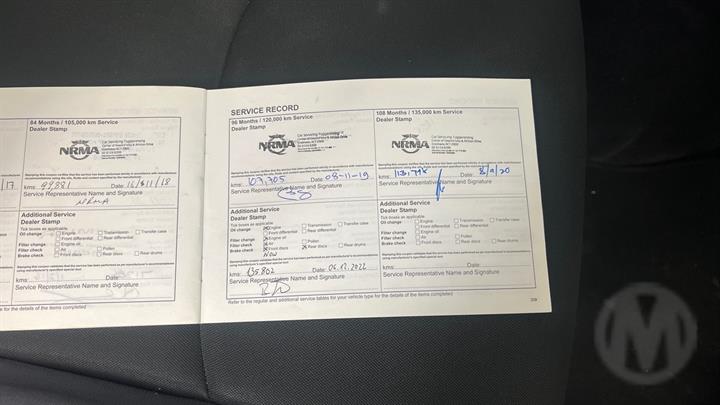 84 Months / 105,000 km Service
Dealer Stamp
NRMA
kms: 99881 Date: 16/11/18
Service Representative Name and Signature
NRMA
Additional Service
Dealer Stamp
Tick boxes as applicable
Oil change Engine Transmission Transfer case
Front differential Rear differential
Filter change Engine oil
Filter check Air Pollen
Brake check Front discs Rear discs Rear drums
kms: Date:
Service Representative Name and Signature
SERVICE RECORD
96 Months / 120,000 km Service
Dealer Stamp
NRMA
Car Servicing Tuggeranong
kms: 107,705 Date: 08-11-19
Service Representative Name and Signature
Additional Service
Dealer Stamp
Tick boxes as applicable
Oil change Engine Transmission Transfer case
Front differential Rear differential
Filter change Engine oil
Filter check Air Pollen
Brake check Front discs Rear discs Rear drums
kms: 135802 Date: 06.12.2022
Service Representative Name and Signature
108 Months / 135,000 km Service
Dealer Stamp
NRMA
Car Servicing Tuggeranong
kms: Date: 8/9/20
Service Representative Name and Signature
Additional Service
Dealer Stamp
Tick boxes as applicable
Oil change Engine Transmission Transfer case
Front differential Rear differential
Filter change Engine oil
Filter check Air Pollen
Brake check Front discs Rear discs Rear drums
kms: Date:
Service Representative Name and Signature
Refer to the regular and additional service tables for your vehicle type for the details of the items completed
M